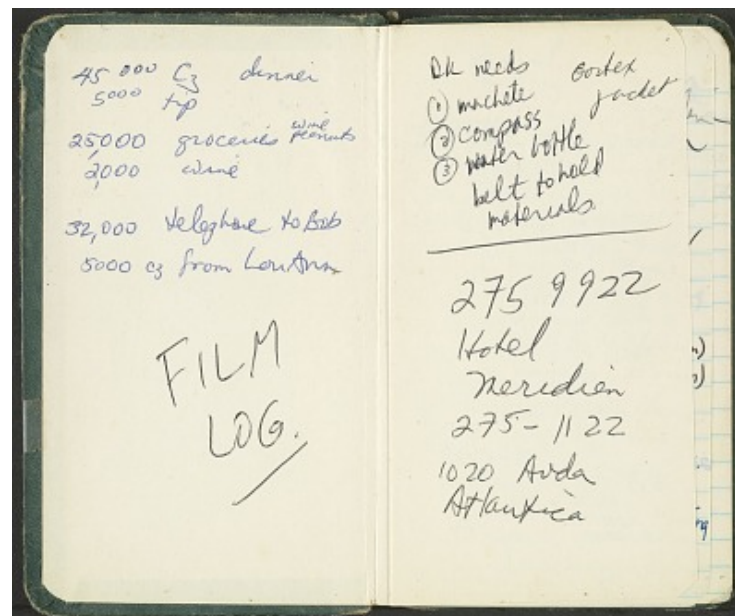 45000 Cz dinner
5000 tip
25,000 groceries wine peanuts
2,000 wine
32,000 telephone to Bob
5000 cz from LouAnn
FILM
LOG.
DK needs
① machete
② compass
③ water bottle
belt to hold
materials
Gortex
jacket
275 9922
Hotel
Meridien
275-1122
1020 Avda
Atlantica